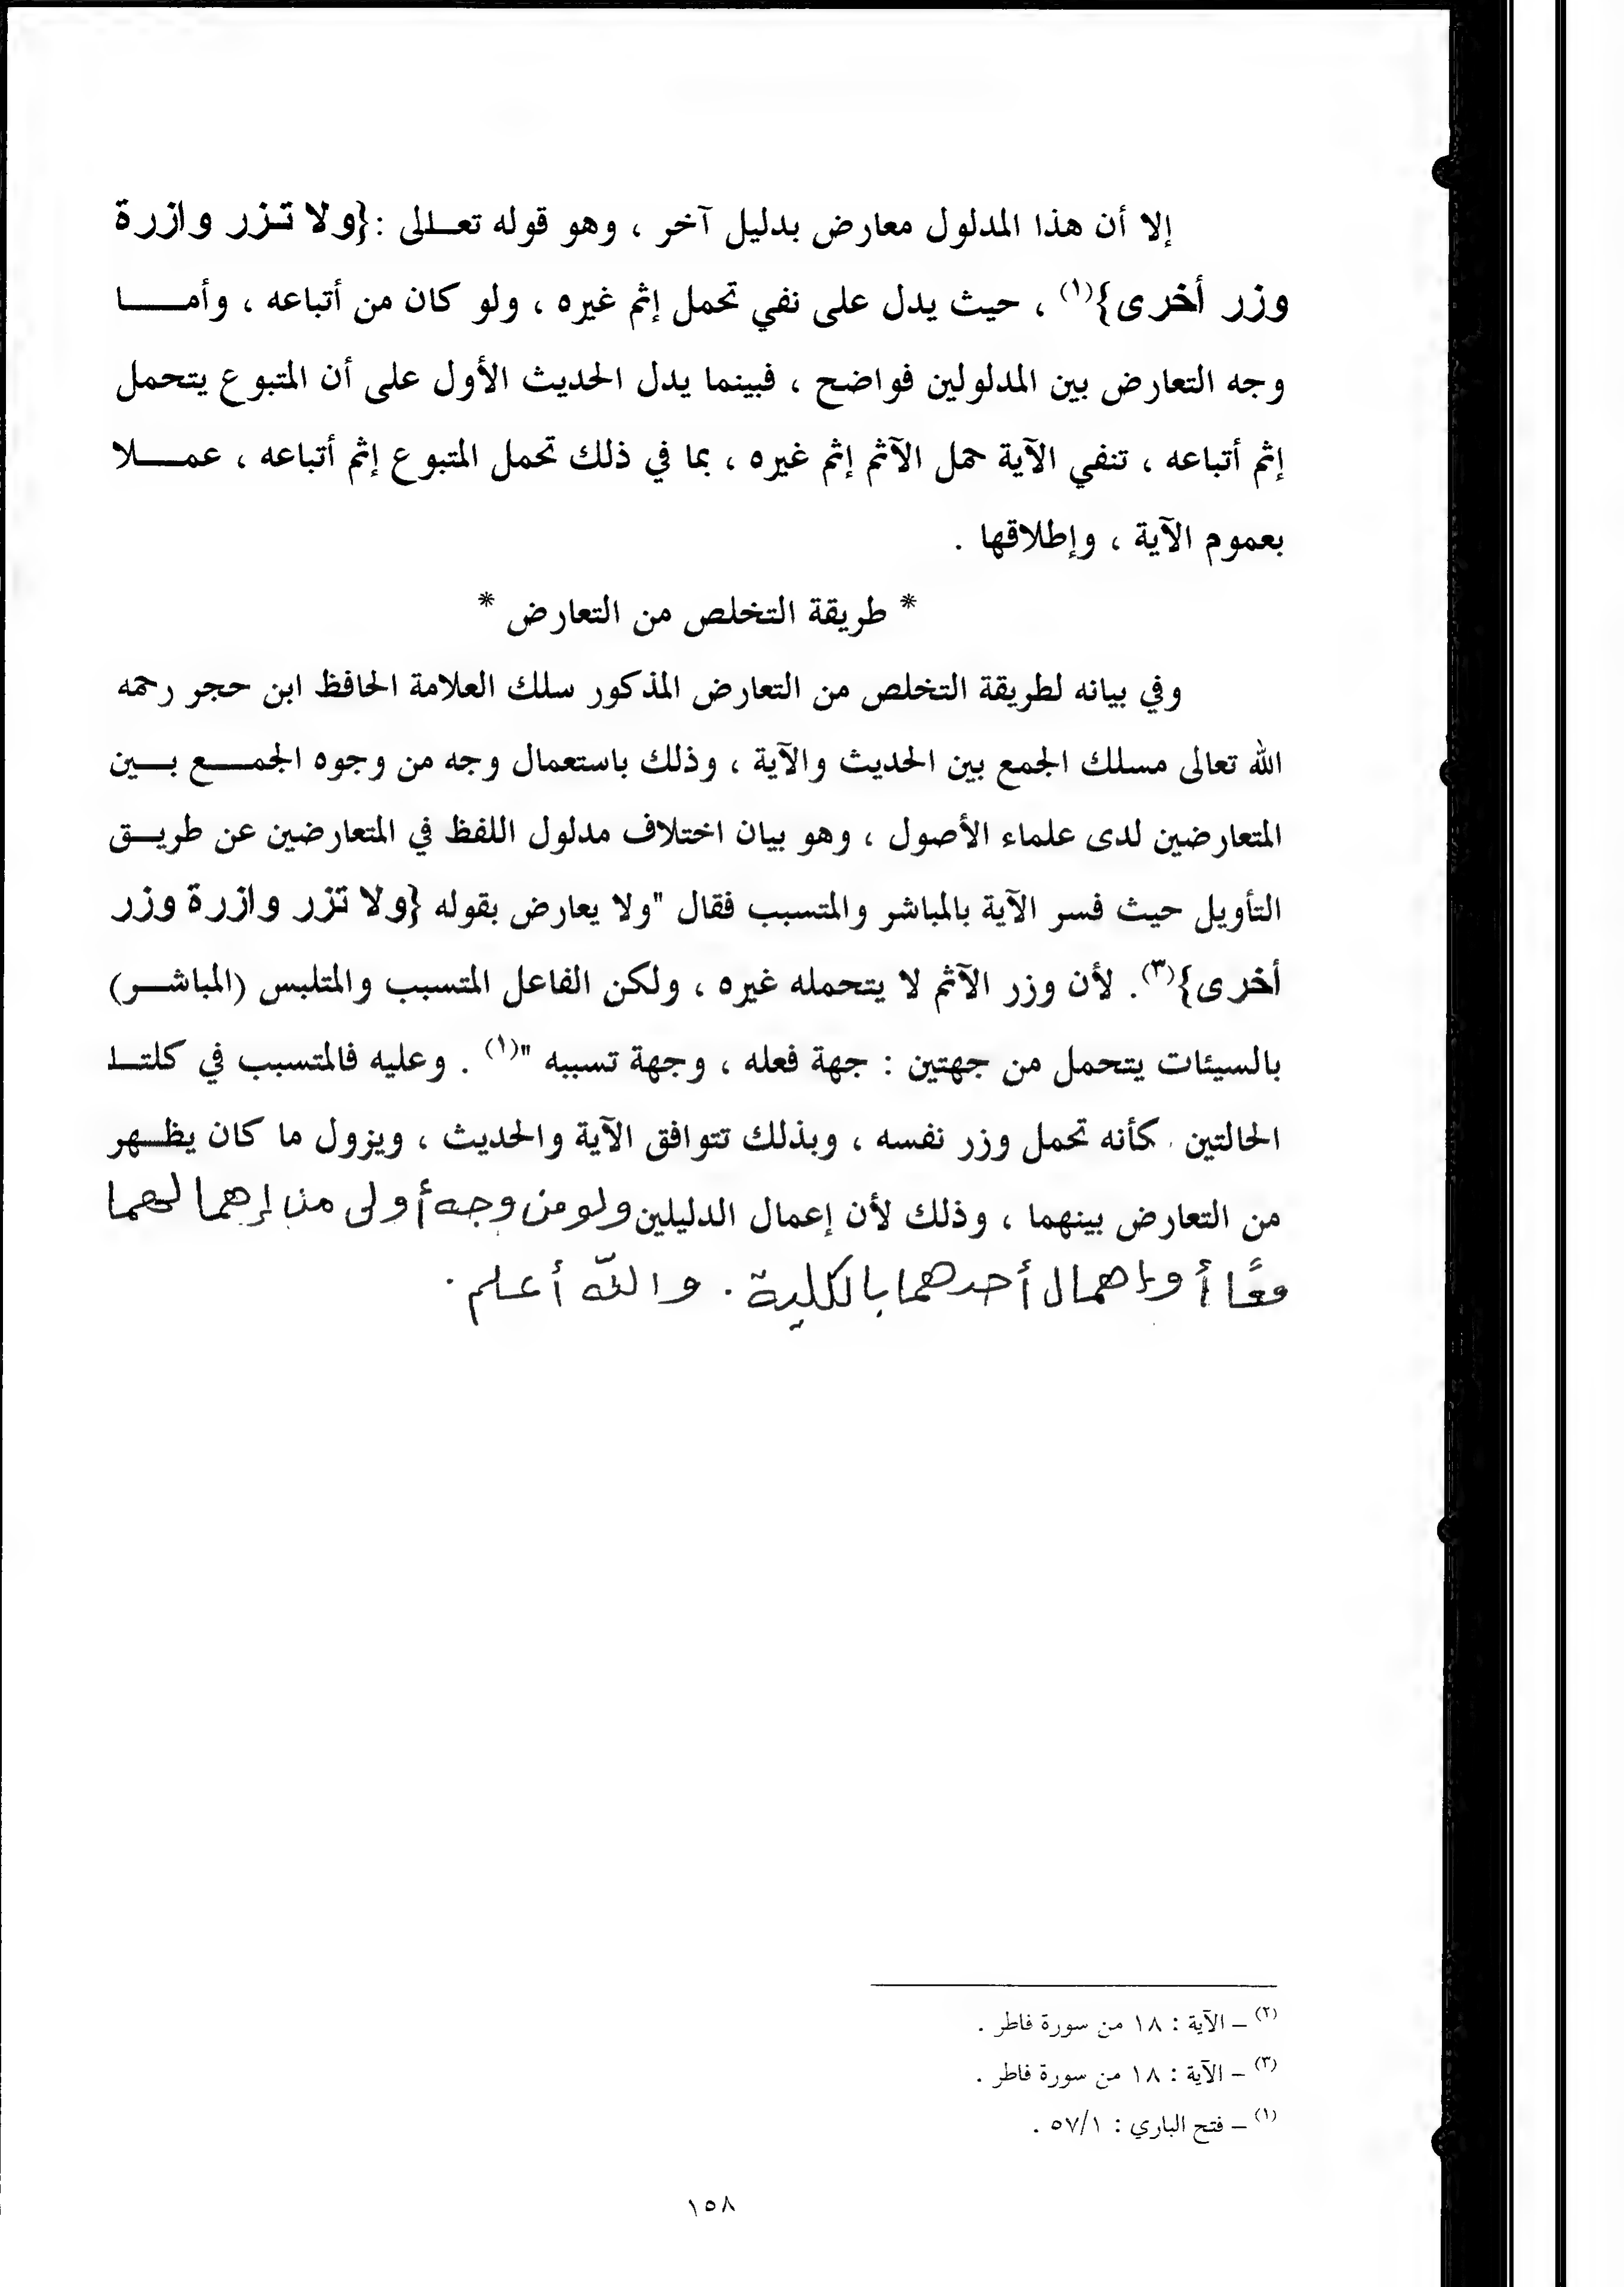 إلا أن هذا المدلول معارض بدليل آخر ، وهو قوله تعالى :{ولا تزر وازرة
وزر أخرى}(١) ، حيث يدل على نفي تحمل إثم غيره ، ولو كان من أتباعه ، وأما
وجه التعارض بين المدلولين فواضح ، فبينما يدل الحديث الأول على أن المتبوع يتحمل
إثم أتباعه ، تنفي الآية حمل الآثم إثم غيره ، بما في ذلك تحمل المتبوع إثم أتباعه ، عملا
بعموم الآية ، وإطلاقها .
* طريقة التخلص من التعارض *
وفي بيانه لطريقة التخلص من التعارض المذكور سلك العلامة الحافظ ابن حجر رحمه
الله تعالى مسلك الجمع بين الحديث والآية ، وذلك باستعمال وجه من وجوه الجمع بين
المتعارضين لدى علماء الأصول ، وهو بيان اختلاف مدلول اللفظ في المتعارضين عن طريق
التأويل حيث فسر الآية بالمباشر والمتسبب فقال "ولا يعارض بقوله {ولا تزر وازرة وزر
أخرى}(٣). لأن وزر الآثم لا يتحمله غيره ، ولكن الفاعل المتسبب والمتلبس (المباشر)
بالسيئات يتحمل من جهتين : جهة فعله ، وجهة تسببه "(١) . وعليه فالمتسبب في كلتا
الحالتين كأنه تحمل وزر نفسه ، وبذلك تتوافق الآية والحديث ، ويزول ما كان يظهر
من التعارض بينهما ، وذلك لأن إعمال الدليلين ولو من وجه أولى من إهمالهما
معًا أو إهمال أحدهما بالكلية . والله أعلم .
(٢) – الآية : ١٨ من سورة فاطر .
(٣) – الآية : ١٨ من سورة فاطر .
(١) – فتح الباري : ٥٧/١ .
١٥٨